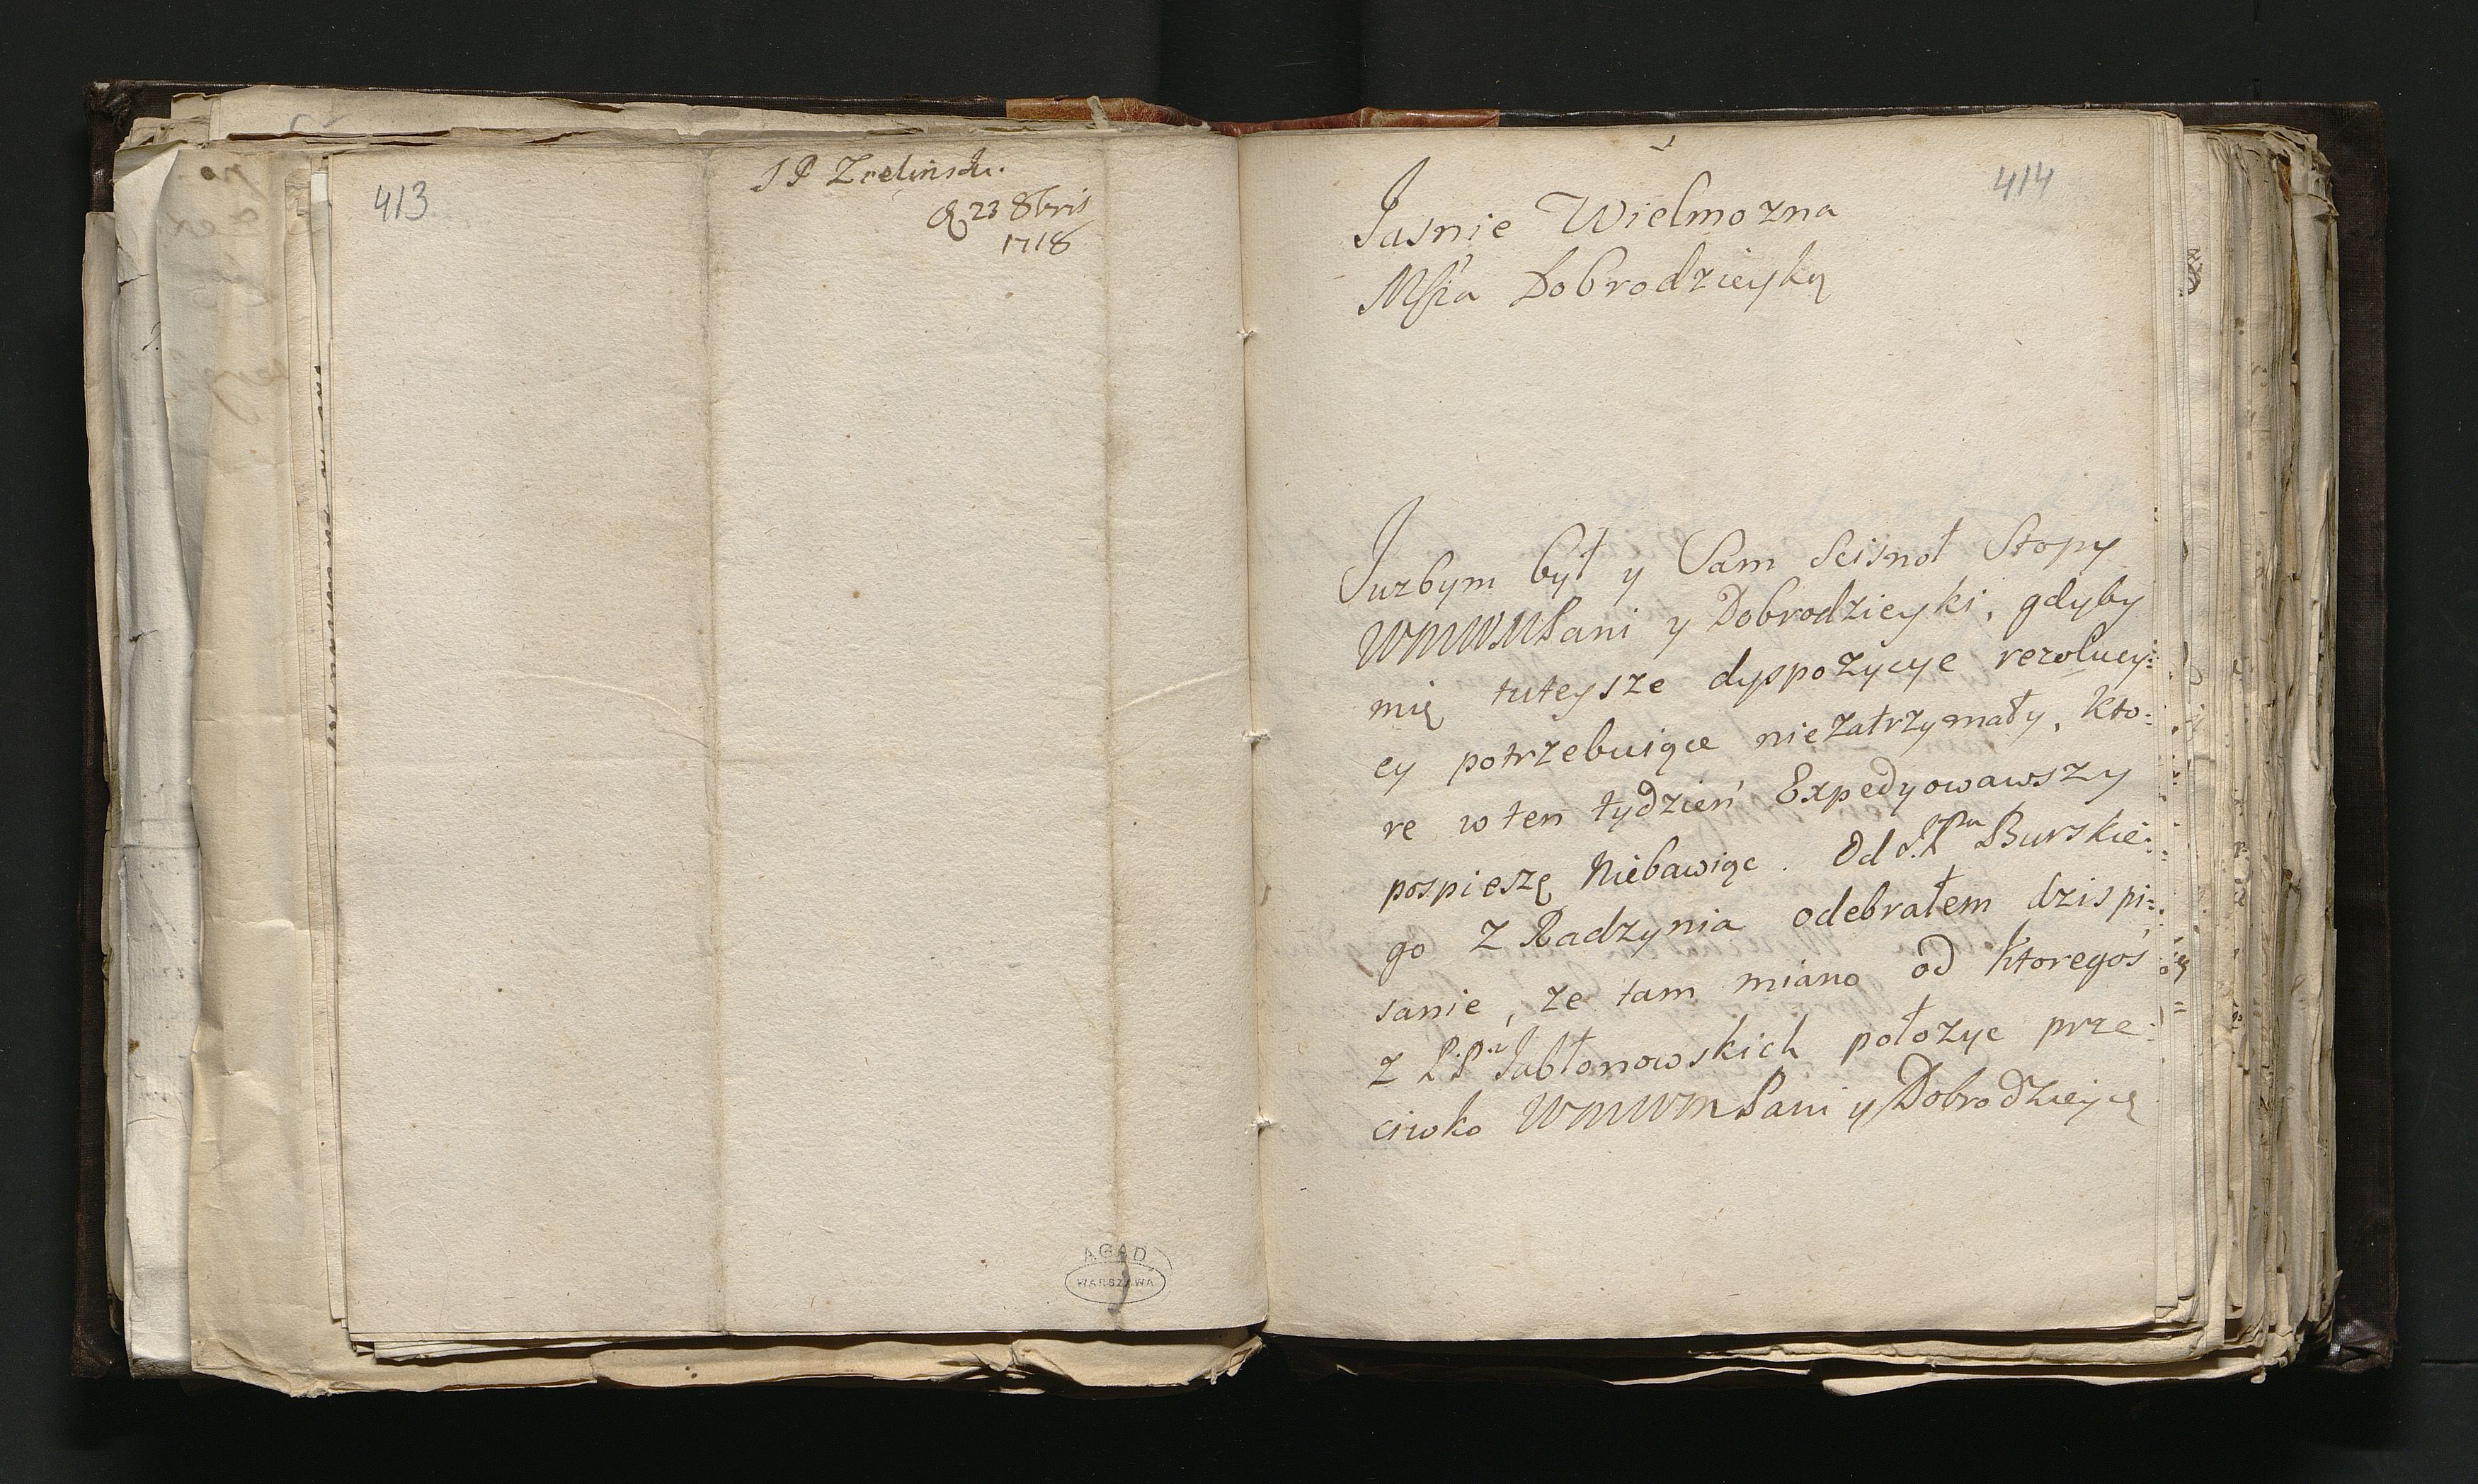 413
J P Zielinski.
23 8bris
1718
AGAD
WARSZAWA
414
Jasnie Wielmozna
Mścia Dobrodzieyką
Juzbym był y Sam Scisnoł Stopy
WMWMPani y Dobrodzieyki, gdyby
mię tuteysze dyspozycye rezolucy:
ey potrzebuiące niezatrzymały, kto:
re w ten tydzień Expedyowawszy
pospieszę Niebawiąc. Od J.Pna Burskie:
go z Radzynia odebrałem dzis pi:
sanie, ze tam miano od ktoregoś
z PP Jabłonowskich połozyc prze:
ciwko WMWMPani y Dobrodzieyce